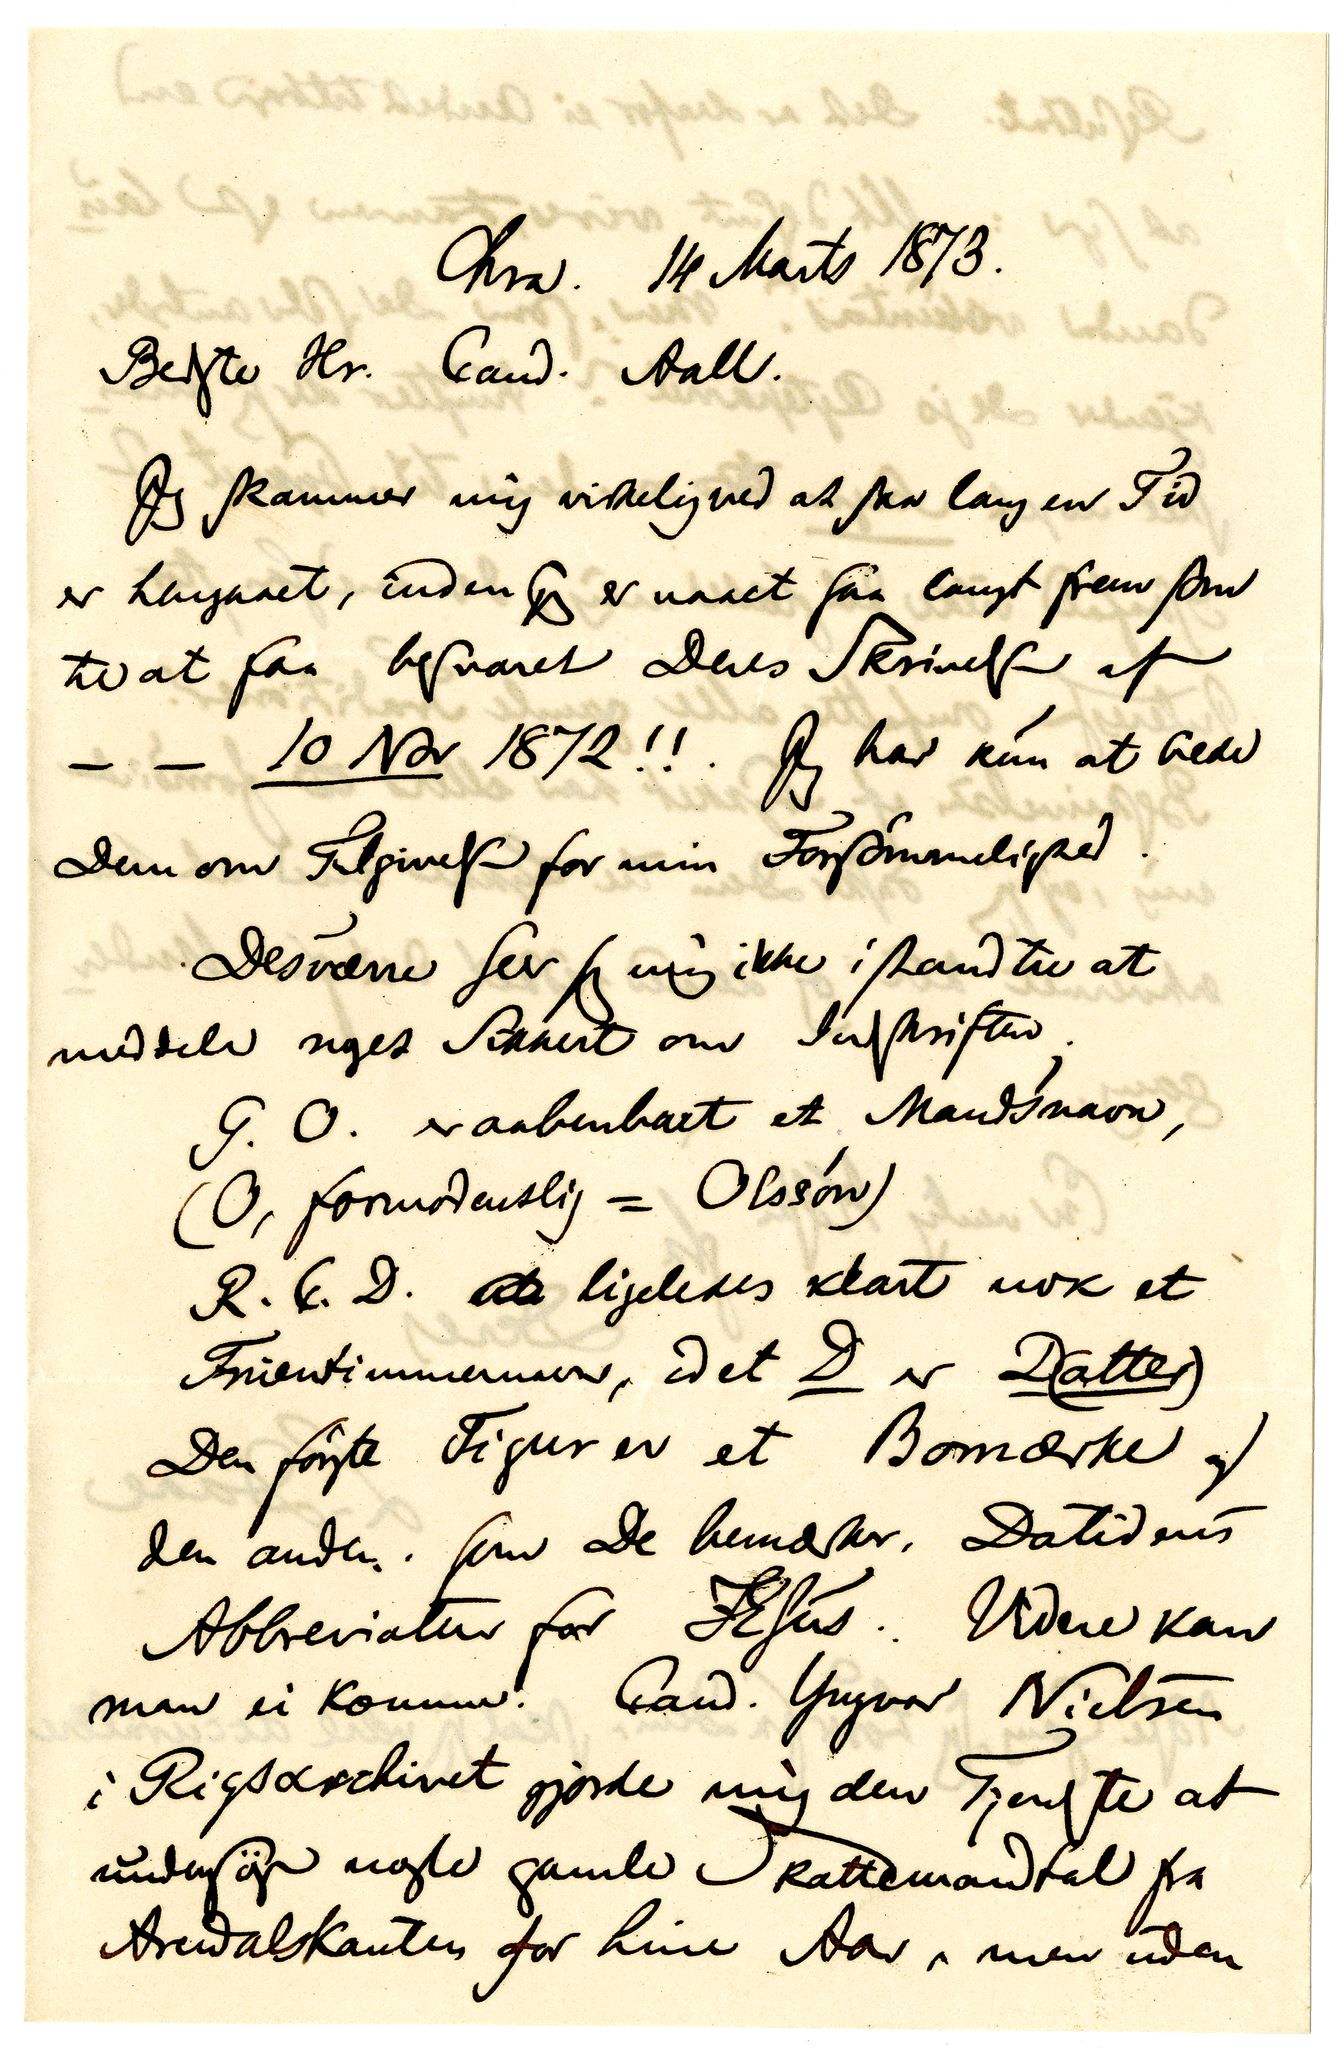 Chra. 14 Marts 1873.
Bedste Hr. Cand. Aall.
Jeg skammer mig virkelig ved at saa lang en Tid
er hengaaet, inden jeg er naaet saa langt frem som
til at faa besvaret Deres Skrivelse af
— — 10 Nov 1872!!. Jeg har kun at bede
Dem om Tilgivelse for min Forsömmelighed.
Desværre seer jeg mig ikke istand til at
meddele noget Sikkert om Indskriften.
G. O. er aabenbart et Mandsnavn,
(O, formodentlig = Olssön)
R. C. D. ligeledes klart nok et
Fruentimmernavn, idet D er D(atter)
Den første Figur er et Bomærke og
den anden, som De bemærker, Datidens
Abbreviatur for JEsus. Videre kan
man ei komme. Cand. Yngvar Nielsen
i Rigsarchivet gjorde mig den Tjeneste at
undersöge nogle gamle Skattemandtal fra
Arendalskanten for hine Aar, men uden